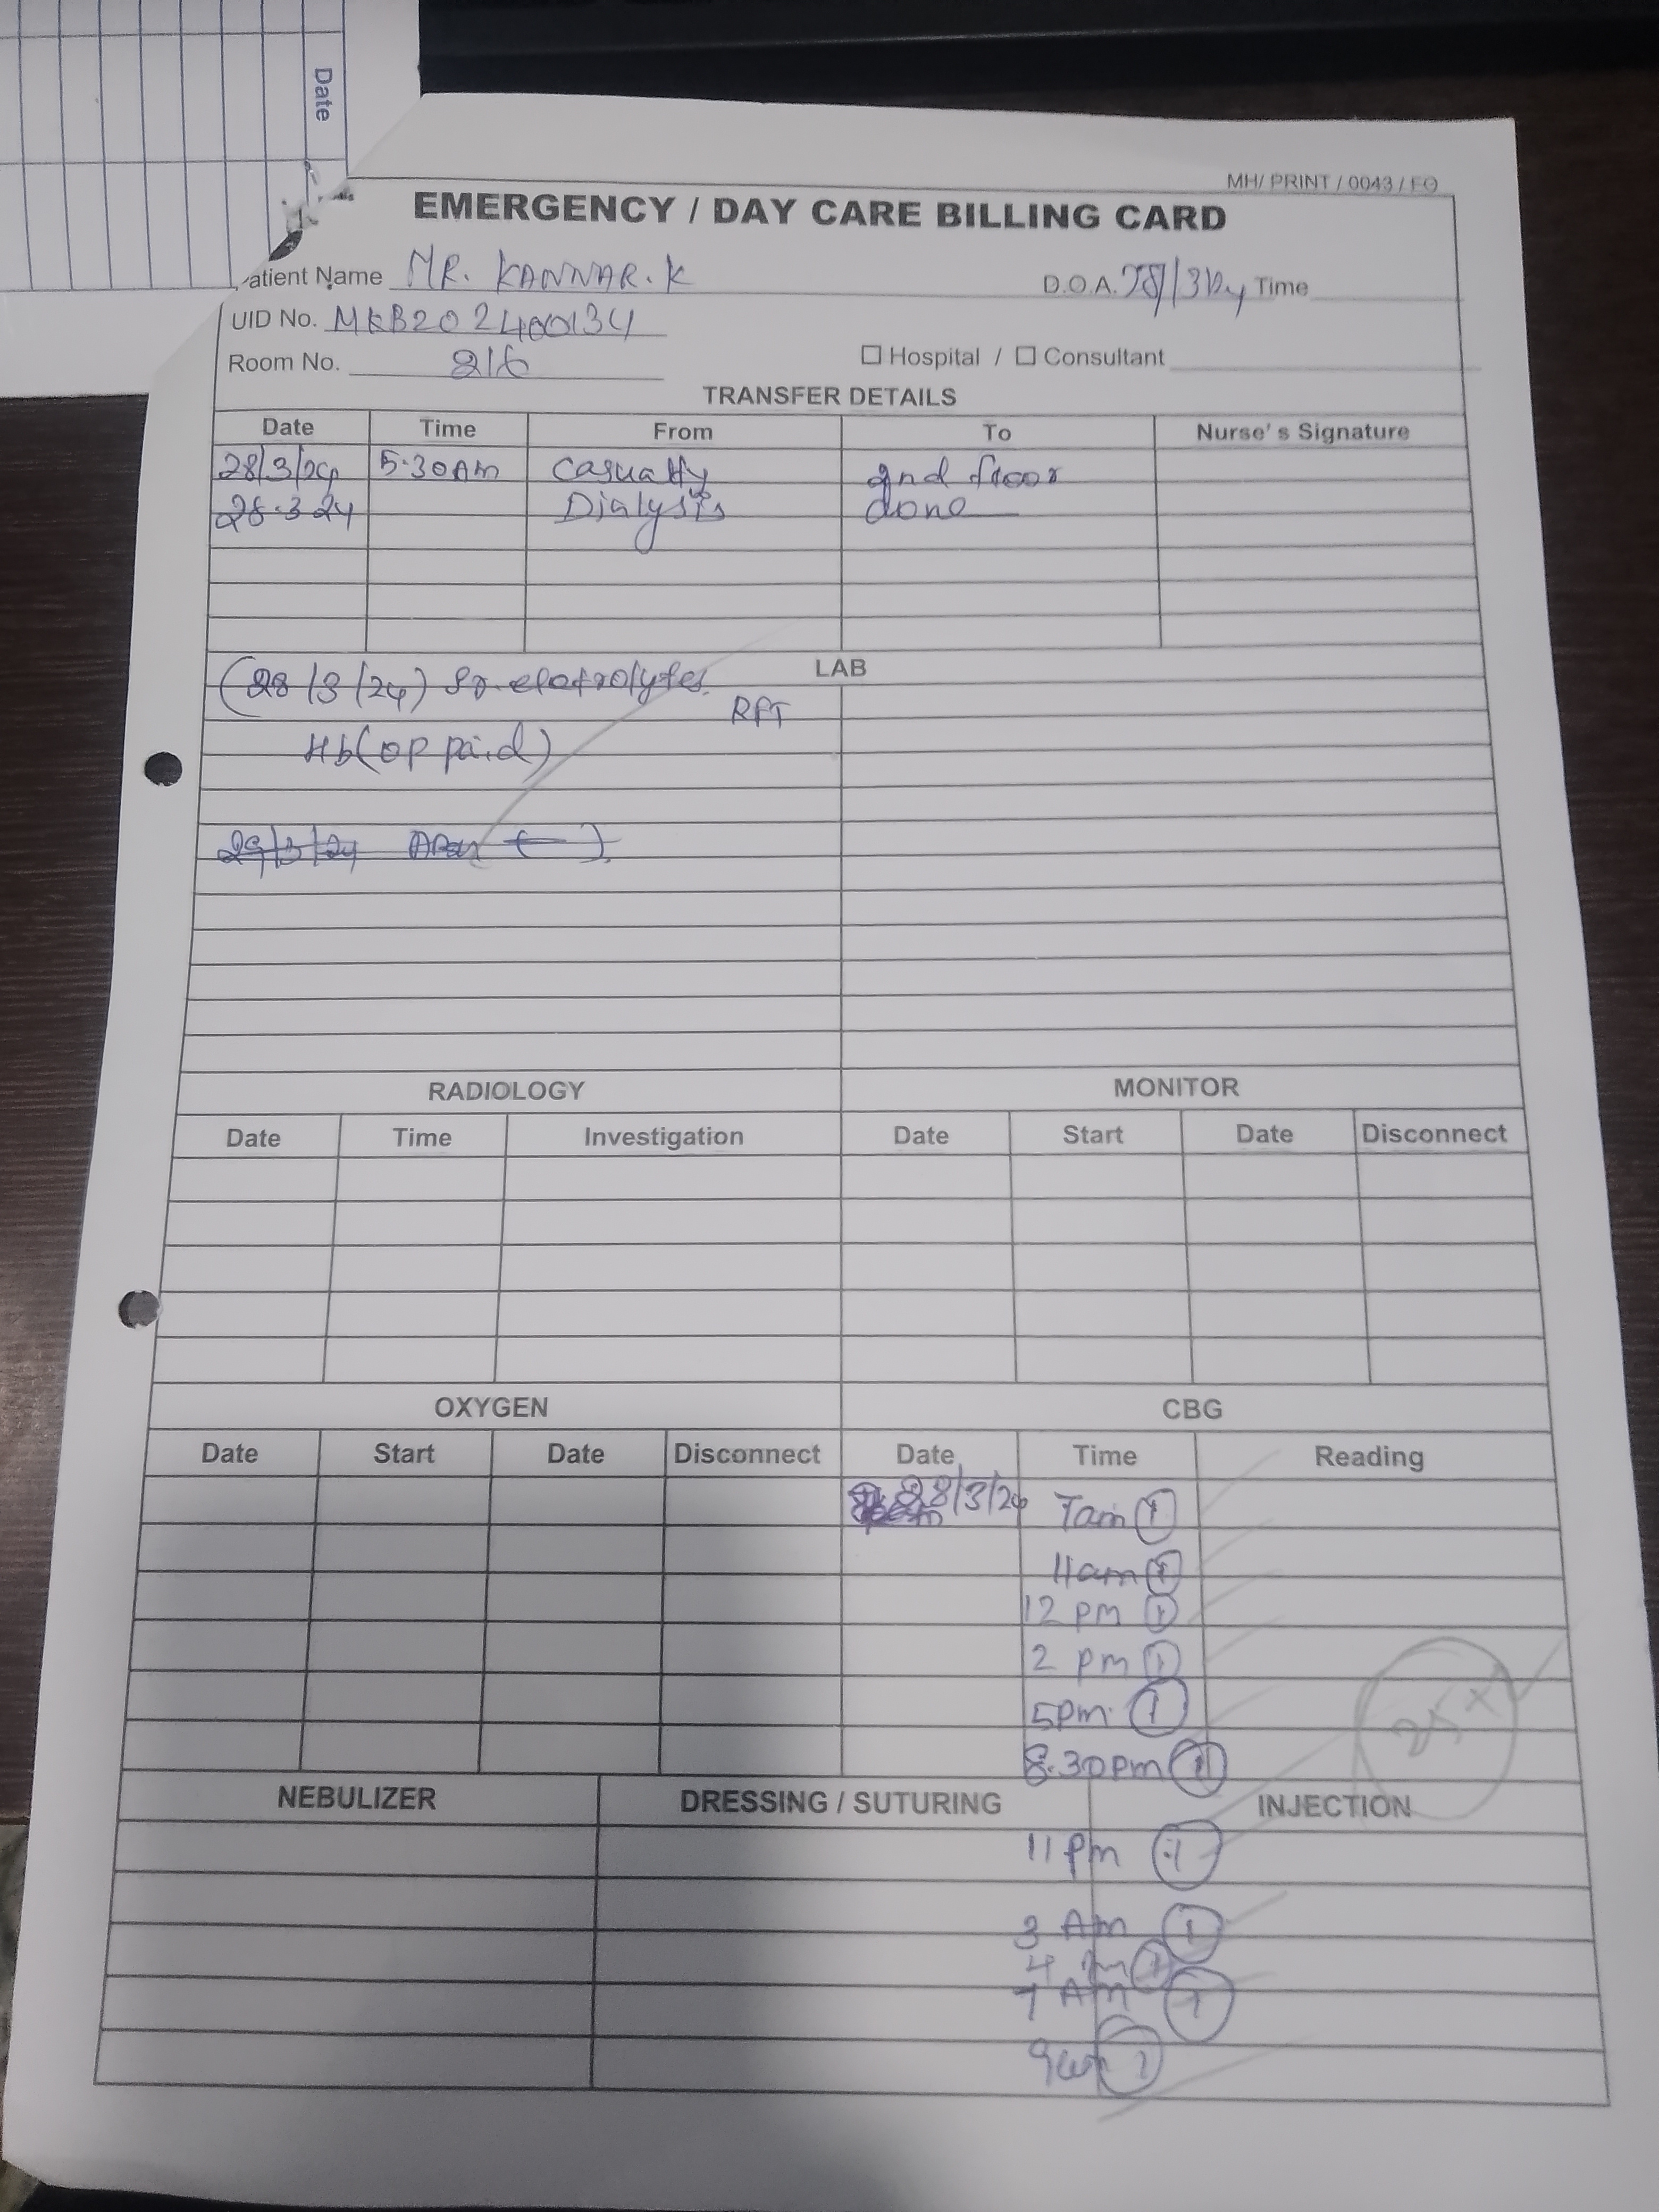 Date
MH/ PRINT / 0043 / FO
EMERGENCY / DAY CARE BILLING CARD
atient Name MR. KANNAR.K D.O.A. 28/3/24 Time
UID No. MKB202400134
Room No. 216 ☐ Hospital / ☐ Consultant
TRANSFER DETAILS
Date Time From To Nurse's Signature
28/3/24 5.30Am Casualty 2nd floor
28.3.24 Dialysis done
LAB
(28/3/24) Sr. eletrolytes
RFT
Hb (OP paid)
29/3/24
RADIOLOGY MONITOR
Date Time Investigation Date Start Date Disconnect
OXYGEN CBG
Date Start Date Disconnect Date Time Reading
28/3/24 7am 1
11am 1
12 pm 1
2 pm 1
5pm. 1
8.30pm 1
NEBULIZER DRESSING / SUTURING INJECTION
11 pm 1
3 Am 1
4 1
7 Am 1
1